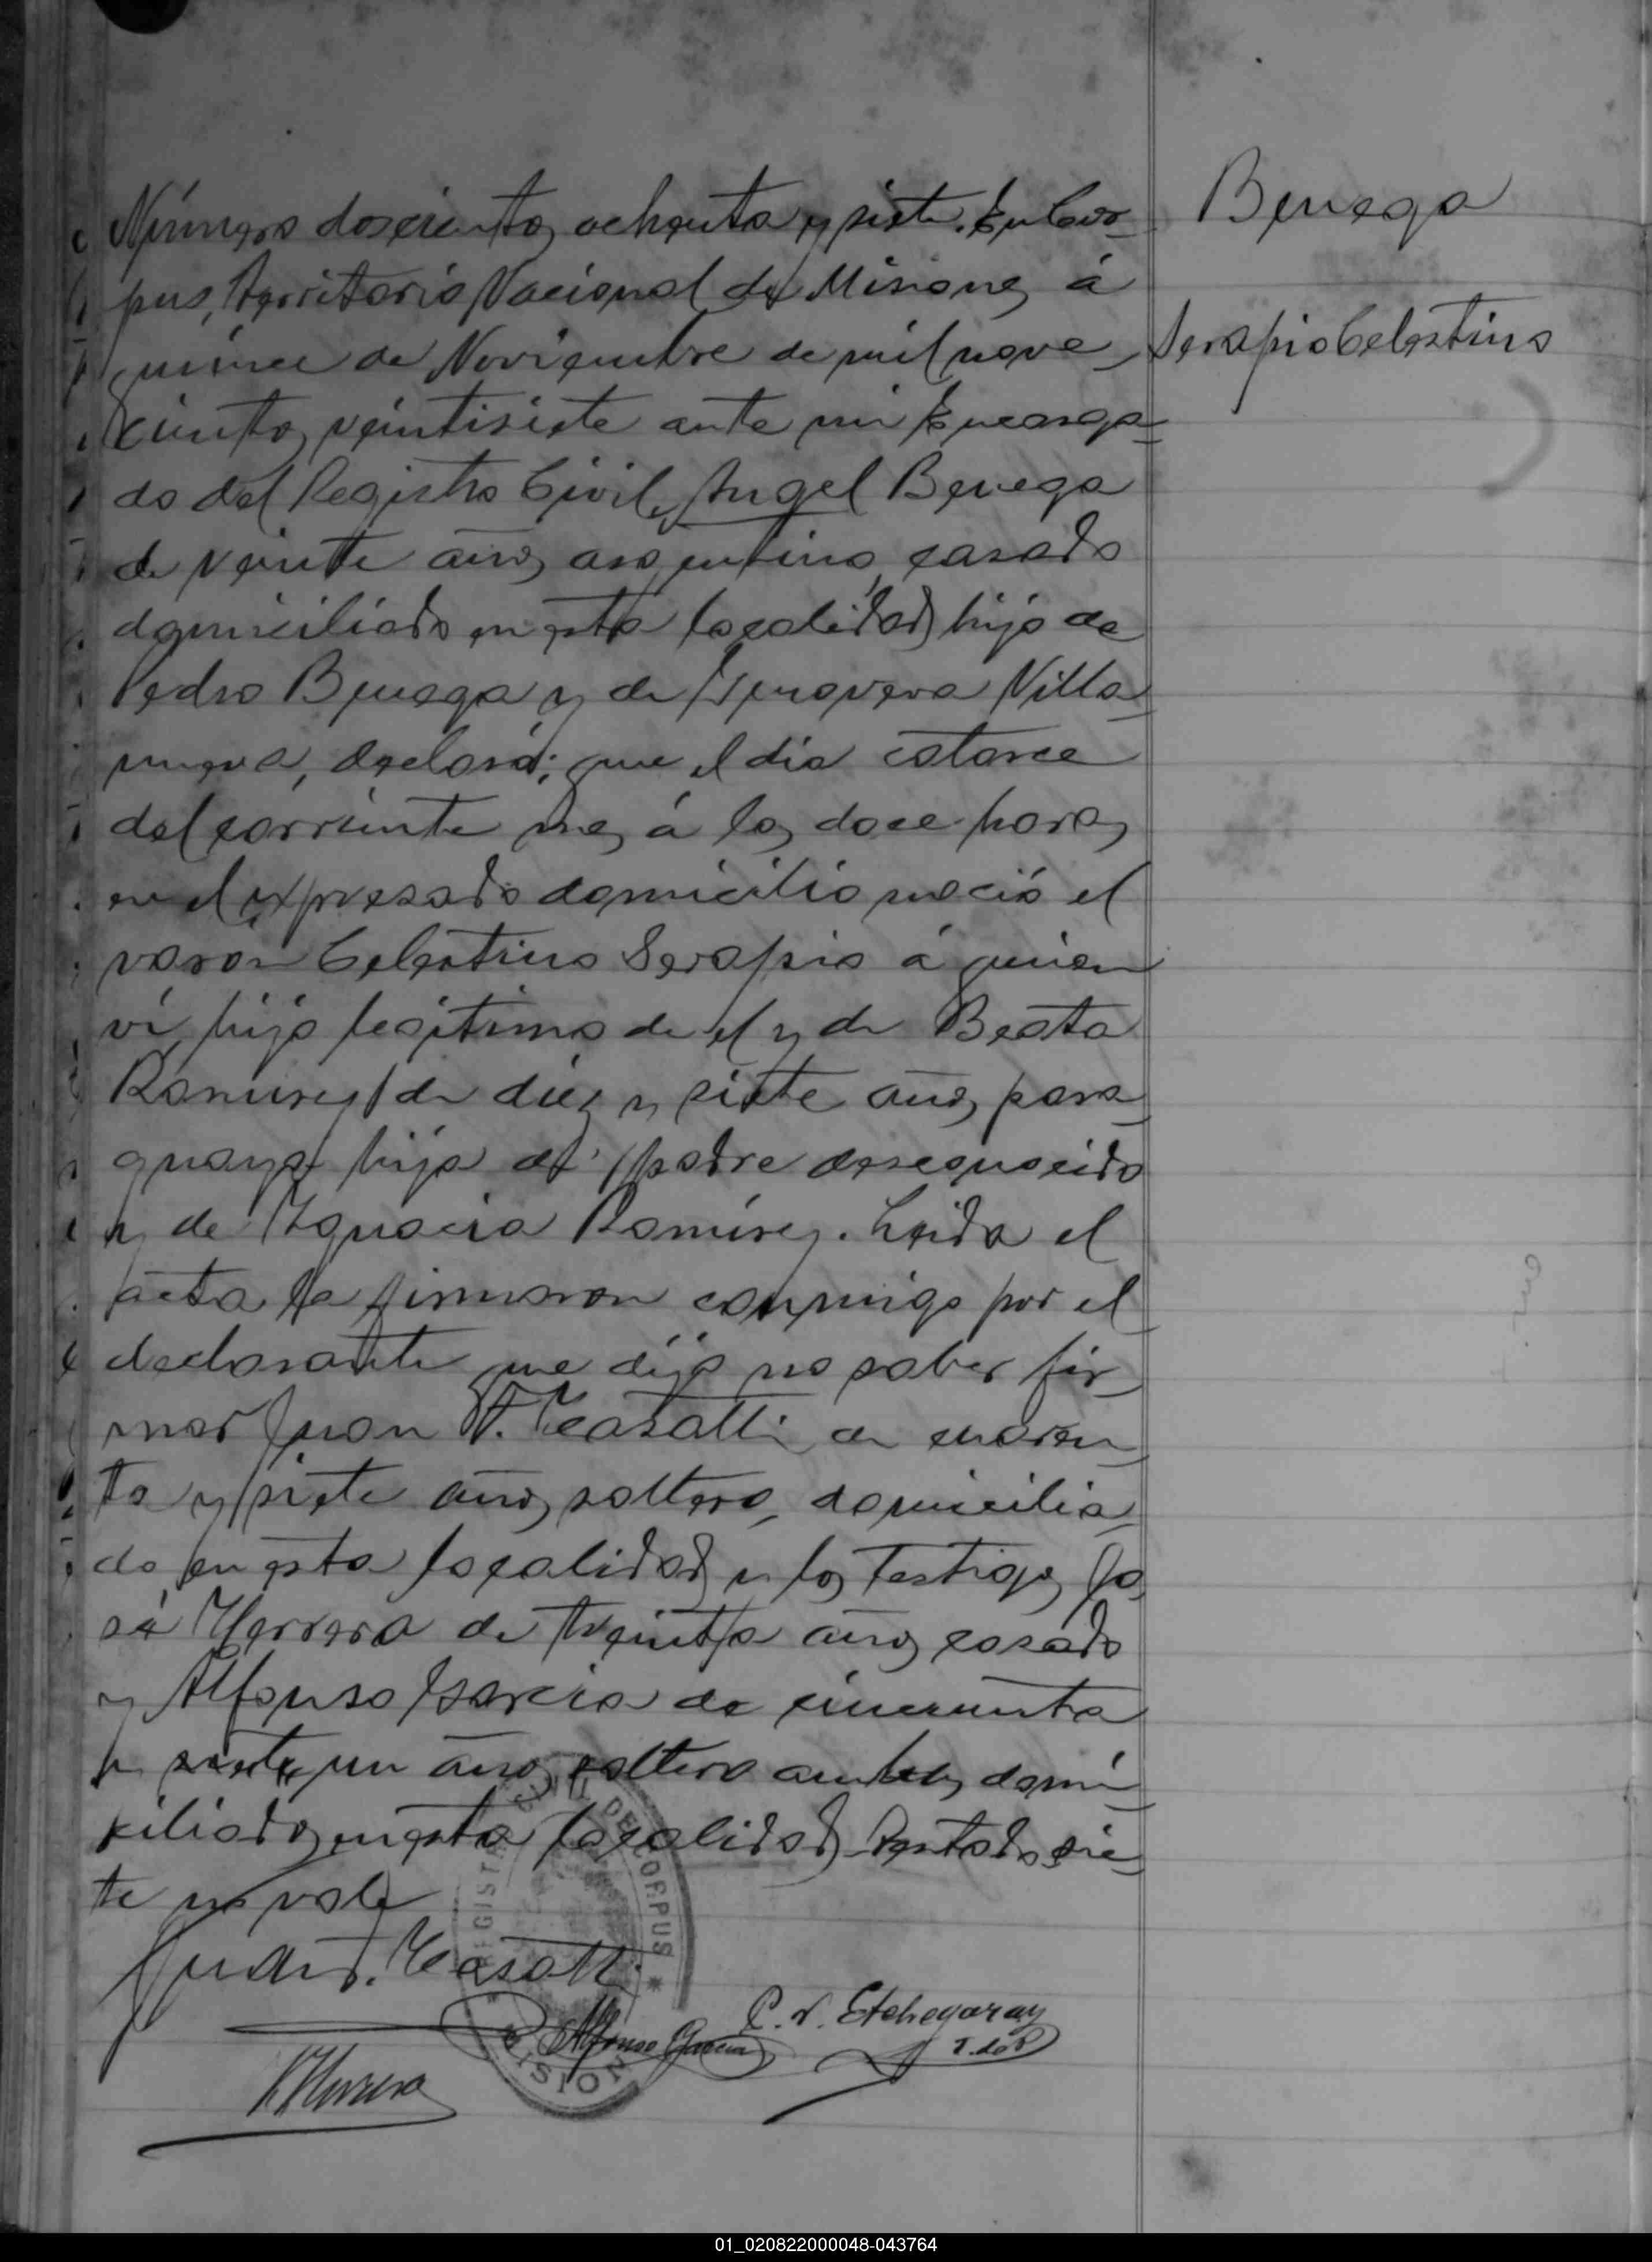 Benega
Serapio Celestino
Número doscientos ochenta y siete. En Cor-
pus, Territorio Nacional de Misiones á
quince de Noviembre de mil nove-
cientos veintisiete ante mi Encarga-
do del Registro Civil, Angel Benega
de veinte años argentino, casado
domiciliado en esta localidad, hijo de
Pedro Benega y de Genoveva Villa-
nueva, declaró; que el dia catorce
del corriente mes á las doce horas
en el expresado domicilio nació el
varón Celestino Serapio á quien
ví, hijo legítimo de el y de Beata
Ramirez, de diez y siete años, para-
guaya hija de padre desconocido
y de Ignacia Ramírez. Leida el
acta la firmaron conmigo por el
declarante que dijo no saber fir-
mar Juan T. Casatti de cuaren-
ta y siete años, soltero, domicilia-
do en esta localidad y los testigos Jo-
sé Herrera de treinta años, casado
y Alfonso Garcia de cincuenta
y siete un años soltero ambos domi-
ciliados en esta localidad. Testado sie-
te no vale
Juan T. Casatti
REGISTRO CIVIL DE CORPUS
MISIONES
Alfonso Garcia
C. V. Etchegaray
J. Herrera
01_020822000048-043764